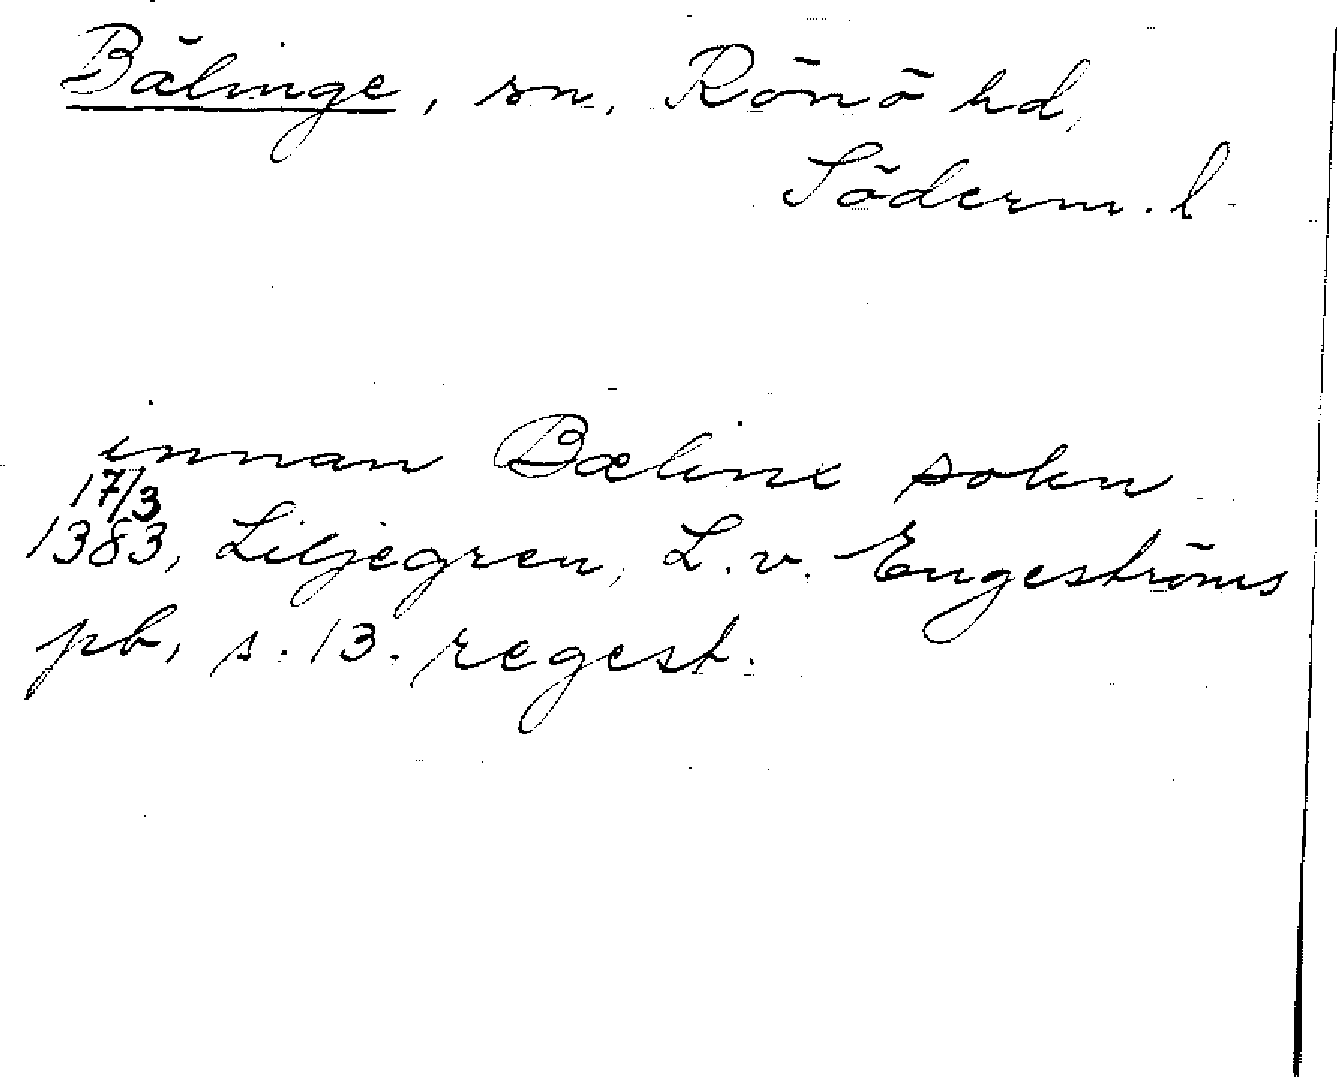 Bälinge, sn, Rönö hd,
Söderm. l
innan Bælinx sokn
17/3
1383, Liljegren, L. v. Engeströms
pb, s. 13. regest.